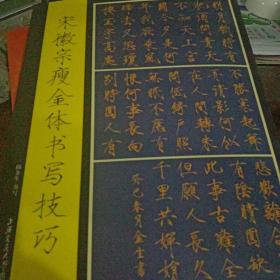 宋徽宗瘦金体书写技巧
酒問青天
不知天上宮
闕今夕是何
年我欲乘風
歸去又恐瓊
樓玉宇高處
不勝寒起舞
弄清影何似
在人間轉朱
閣低綺戶照
無眠不應有
恨何事長向
別時圓人有
悲歡離合
有陰晴圓缺
此事古難全
但願人長久
千里共嬋娟